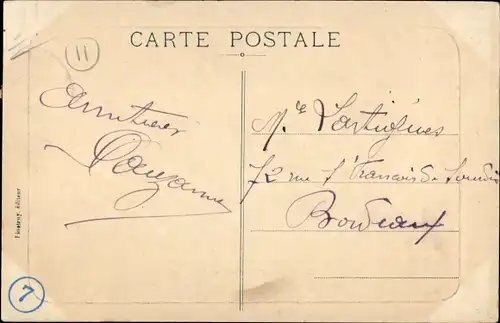 11
CARTE POSTALE
Amitiés
Mlle Lartigues
72 rue St François de Sourdis
Bordeaux
éditeur
7